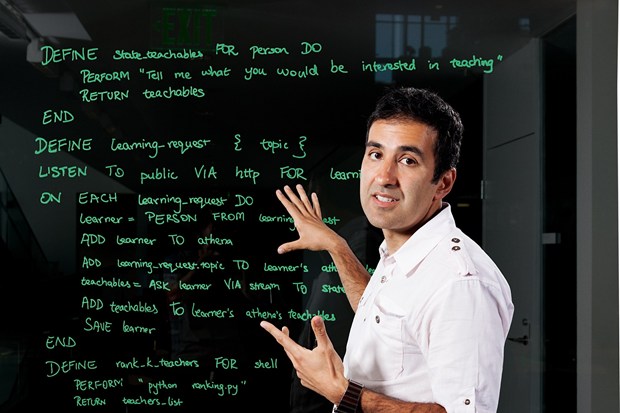 EXIT
DEFINE state_teachables FOR person DO
PERFORM "Tell me what you would be interested in teaching"
RETURN teachables
END
DEFINE learning_request { topic }
LISTEN TO public VIA http FOR learni
ON EACH learning_request DO
learner = PERSON FROM learning est
ADD learner TO athena
ADD learning_request.topic TO learner's athe
teachables = ASK learner VIA stream TO state
ADD teachables TO learner's athena's teachables
SAVE learner
END
DEFINE rank_k_teachers FOR shell
PERFORM: "python ranking.py"
RETURN teachers_list